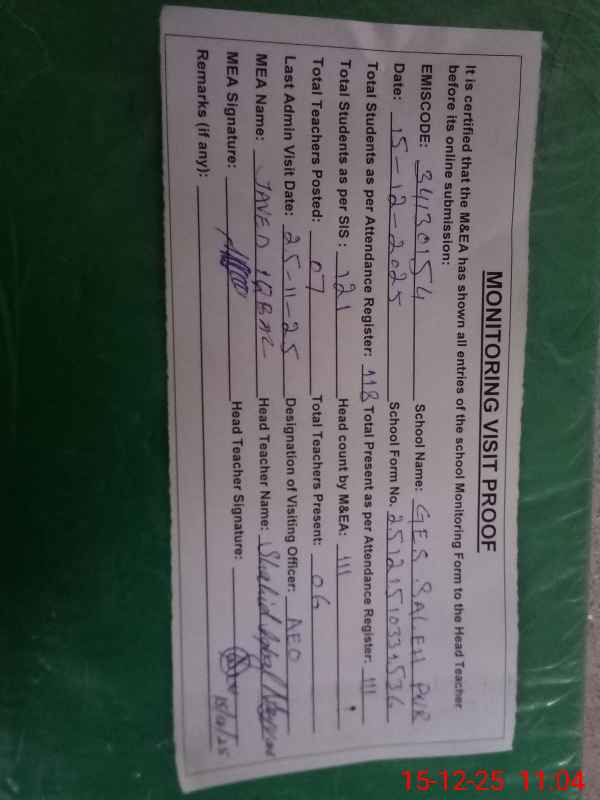 MONITORING VISIT PROOF
It is certified that the M&EA has shown all entries of the school Monitoring Form to the Head Teacher
before its online submission:
EMISCODE: 34130154 School Name: GES SALEH PUR
Date: 15-12-2025 School Form No. 2512151033
Total Students as per Attendance Register: 118 Total Present as per Attendance Register: 111
Total Students as per SIS : 121 Head count by M&EA: 111
Total Teachers Posted: 07 Total Teachers Present: 06
Last Admin Visit Date: 25-11-25 Designation of Visiting Officer: AEO
MEA Name: JAVED IQBAL Head Teacher Name: Shahid
MEA Signature: Head Teacher Signature: 15/12/25
Remarks (if any):
15-12-25 11:04